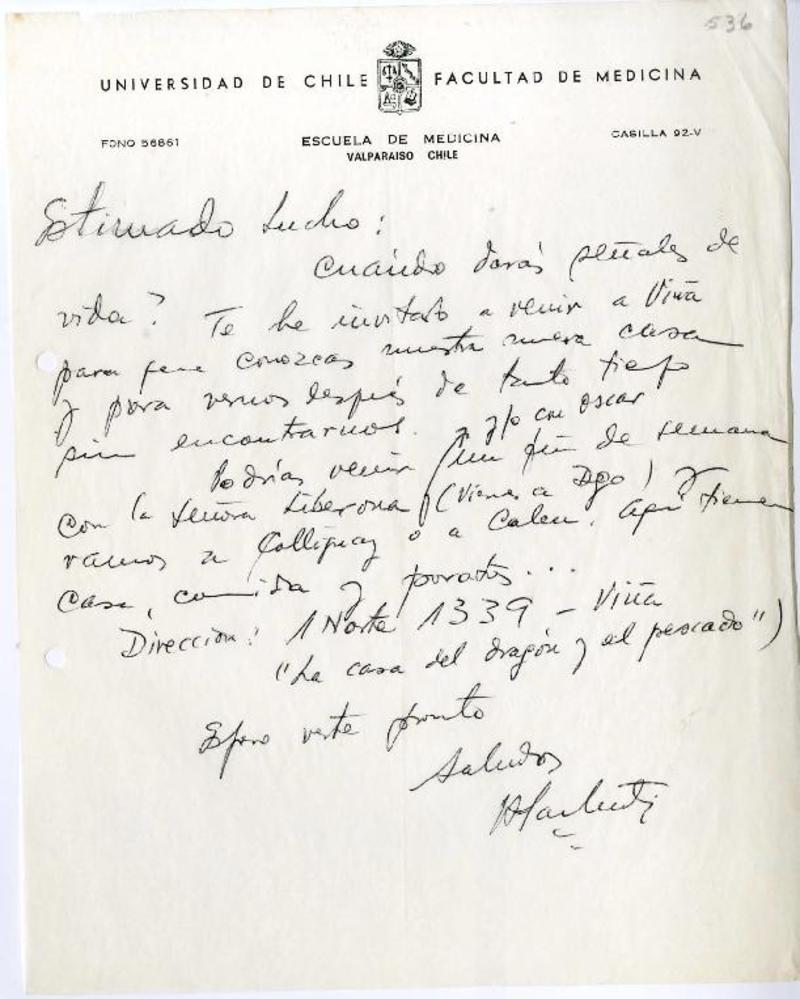 536
UNIVERSIDAD DE CHILE FACULTAD DE MEDICINA
FONO 56861 ESCUELA DE MEDICINA CASILLA 92-V
VALPARAISO CHILE
Estimado Lucho:
Cuándo darás señales de
vida? Te he invitado a venir a Viña
para que conozcas nuestra nueva casa
y para vernos después de tanto tiepo
sin encontrarnos.
y/o con Oscar
Podrías venir un fin de semana
con la señora Liberona (Viernes a Dgo) y
vamos a Colliguay o a Caleu. Aquí tienen
casa, comida y porotos...
Dirección: 1 Norte 1339 - Viña
("La casa del dragón y el pescado")
Espero verte pronto
Saludos